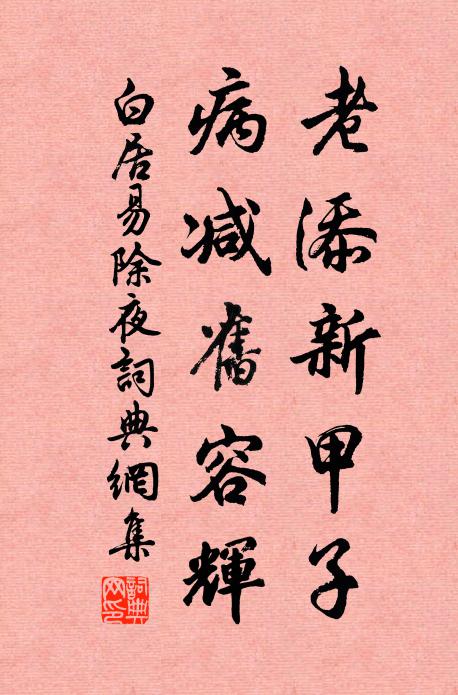 老添新甲子
病减舊容輝
白居易除夜詞典網集
詞典網印